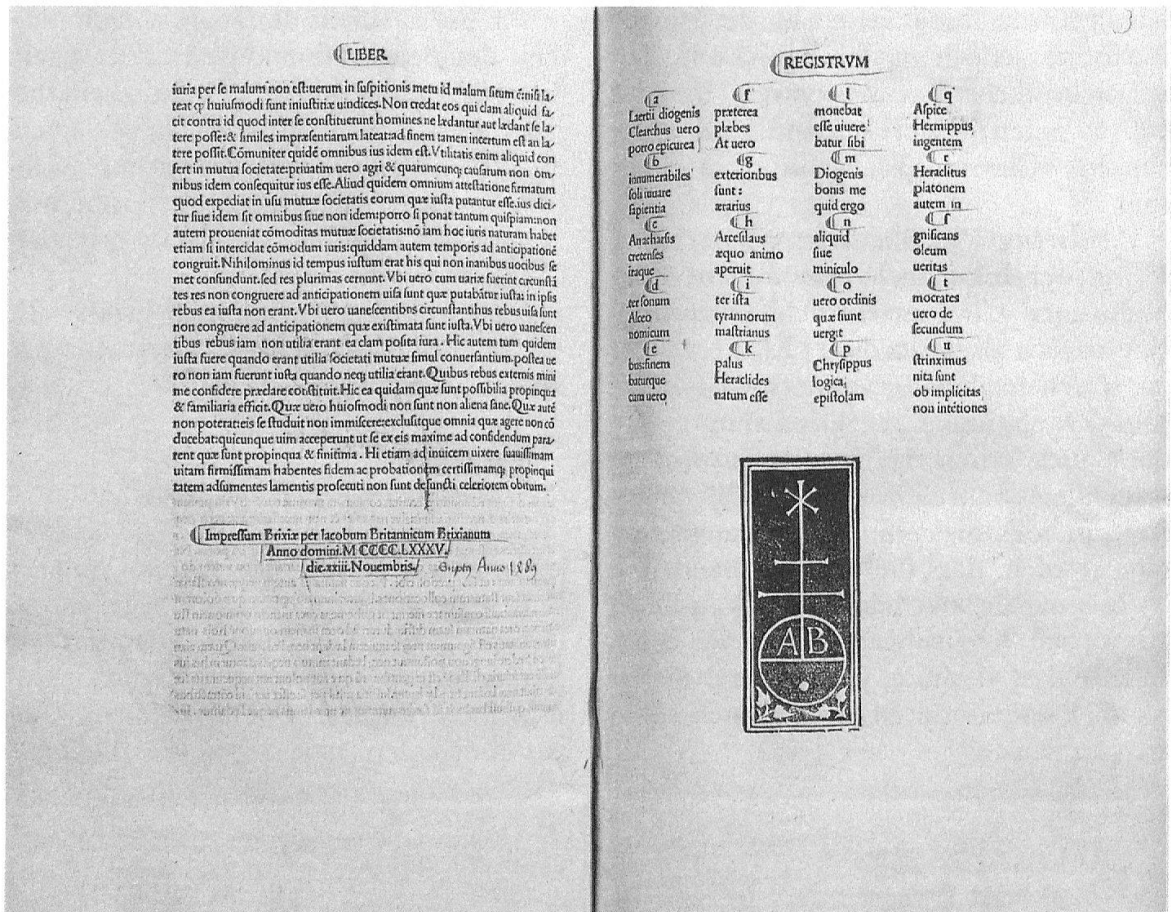 LIBER
iuria per se malum non est:uerum in suspitionis metu id malum situm ē:nisi la-
teat qȝ huiusmodi sunt iniustitiæ uindices. Non credat eos qui clam aliquid fa-
cit contra id quod inter se constituerunt homines ne lædantur aut lædant se la-
tere posse:& similes impræsentiarum lateat:ad finem tamen incertum est an la-
tere possit. Cōmuniter quidē omnibus ius idem est. Vtilitatis enim aliquid con
fert in mutua societate:priuatim uero agri & quarumcunqȝ causarum non om-
nibus idem consequitur ius esse. Aliud quidem omnium attestatione firmatum
quod expediat in usu mutuæ societatis eorum quæ iusta putantur esse.ius dici-
tur siue idem sit omnibus siue non idem:porro si ponat tantum quispiam:non
autem proueniat cōmoditas mutuæ societatis:nō iam hoc iuris naturam habet
etiam si intercidat cōmodum iuris:quiddam autem temporis ad anticipationē
congruit. Nihilominus id tempus iustum erat his qui non inanibus uocibus se
met confundunt.sed res plurimas cernunt. Vbi uero cum uariæ fuerint circunstā
tes res non congruere ad anticipationem uisa sunt quæ putabātur iusta: in ipsis
rebus ea iusta non erant. Vbi uero uanescentibns circunstantibus rebus uisa sunt
non congruere ad anticipationem quæ existimata sunt iusta. Vbi uero uanescen
tibus rebus iam non utilia erant ea clam posita iura. Hic autem tum quidem
iusta fuere quando erant utilia societati mutuæ simul conuersantium.postea ue
ro non iam fuerunt iusta quando neqȝ utilia erant. Quibus rebus externis mini
me confidere præclare constituit. Hic ea quidam quæ sunt possibilia propinqua
& familiaria efficit. Quæ uero huiosmodi non sunt non aliena sane. Quæ autē
non poterat:eis se studuit non immiscere:exclusitque omnia quæ agere non cō
ducebat:quicunque uim acceperunt ut se ex eis maxime ad confidendum para-
rent quæ sunt propinqua & finitima. Hi etiam ad inuicem uixere suauissimam
uitam firmissimam habentes fidem ac probationem certissimamqȝ propinqui
tatem adsumentes lamentis prosecuti non sunt defuncti celeriorem obitum.
Impressum Brixiæ per Iacobum Britannicum Brixianum
Anno domini.M CCCC.LXXXV.
die.xxiii.Nouembris.
REGISTRVM
a
Laertii diogenis
Clearchus uero
porro epicurea
b
innumerabiles
soli iuuare
sapientia
c
Anacharsis
cretenses
itaque
d
ter sonum
Alceo
nomicum
e
bus:finem
baturque
cum uero
f
præterea
plæbes
At uero
g
exterioribus
sunt:
ærarius
h
Arcesilaus
æquo animo
aperuit
i
ter ista
tyrannorum
mastrianus
k
palus
Heraclides
natum esse
l
monebat
esse uiuere
batur sibi
m
Diogenis
bonis me
quid ergo
n
aliquid
siue
miniculo
o
uero ordinis
quæ fiunt
uergit
p
Chrysippus
logica
epistolam
q
Aspice
Hermippus
ingentem
r
Heraclitus
platonem
autem in
s
gnificans
oleum
ueritas
t
mocrates
uero de
secundum
u
strinximus
nita sunt
ob implicitas
non intētiones
A B